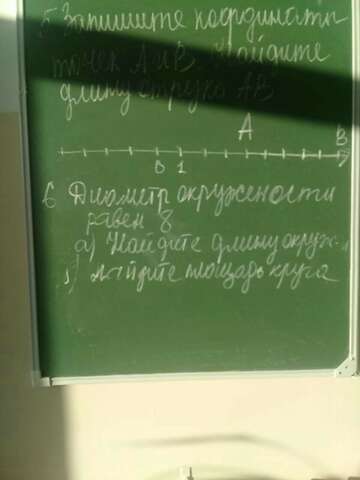 5. Запишите координаты
точек A и B. Найдите
длину отрезка AB
A
B
0 1
6. Диаметр окружености
равен 8
а) Найдите длину окруж.
б) найдите площадь круга